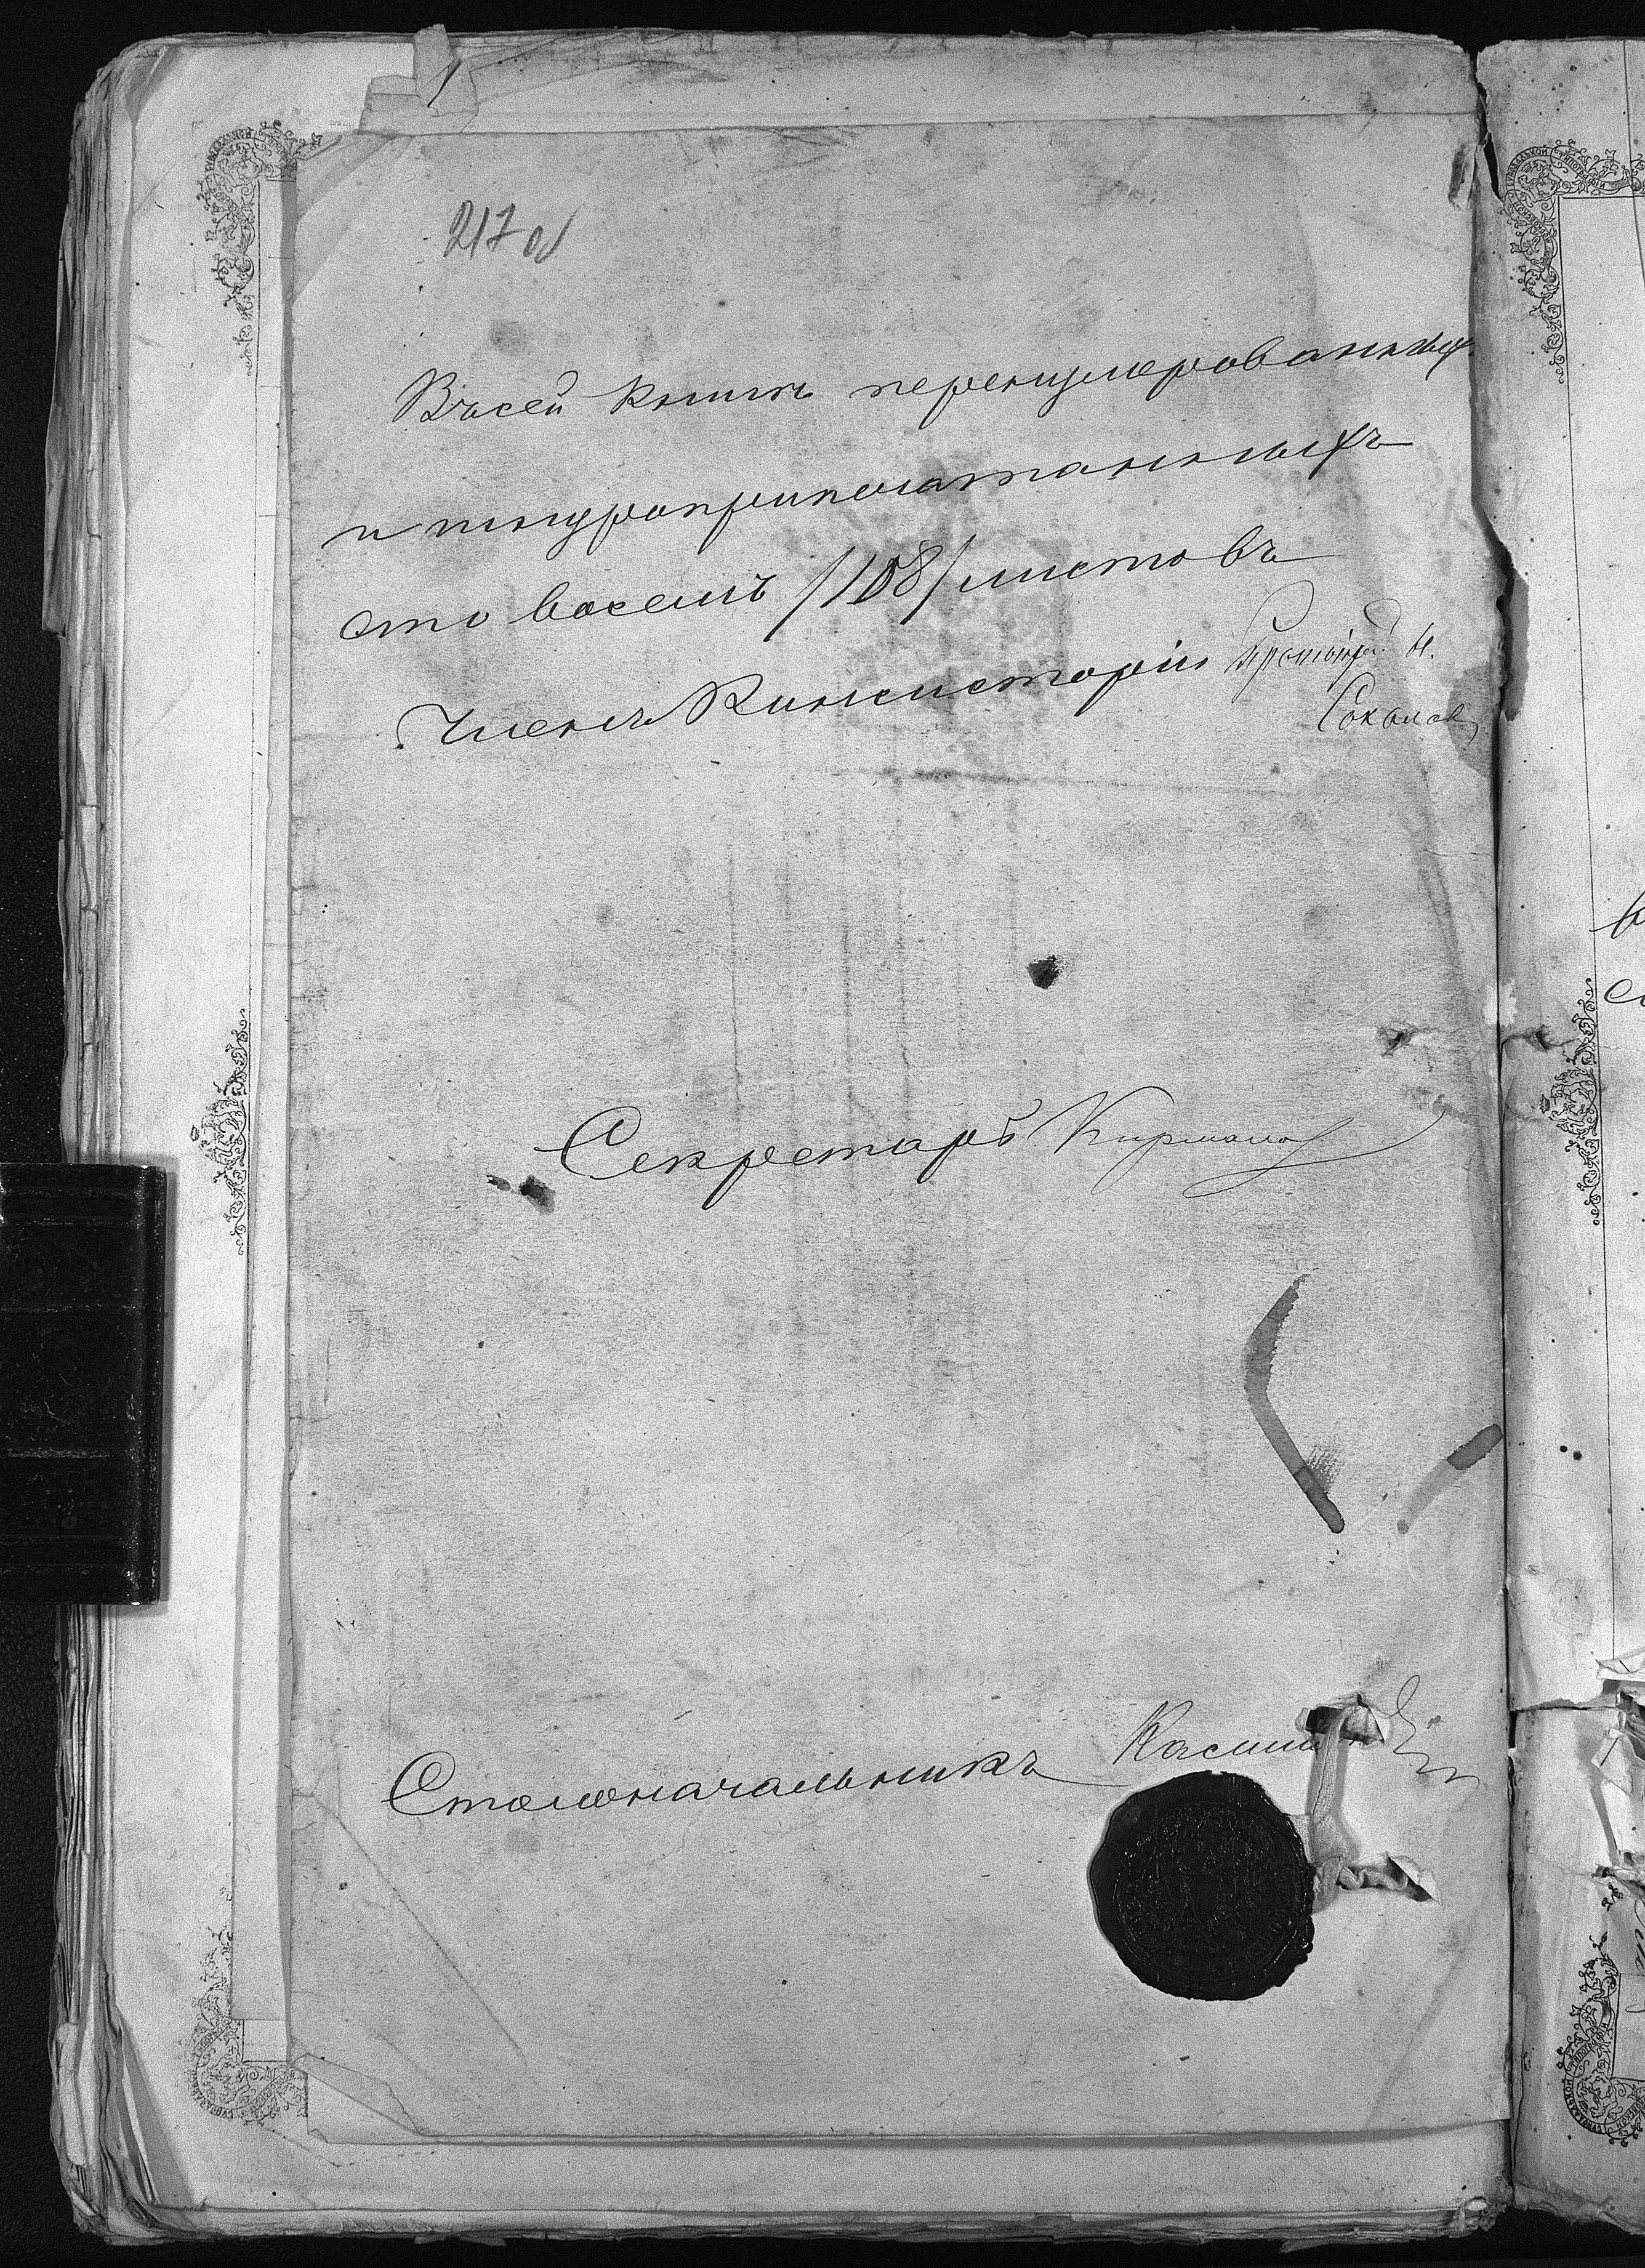 217 об
Въ сей книгѣ перенумерованныхъ
и шнуроприпечатанныхъ
сто восемь /108/ листовъ
Членъ Консисторіи Протоіерей Н.
Соколовъ
Секретарь
Столоначальникъ